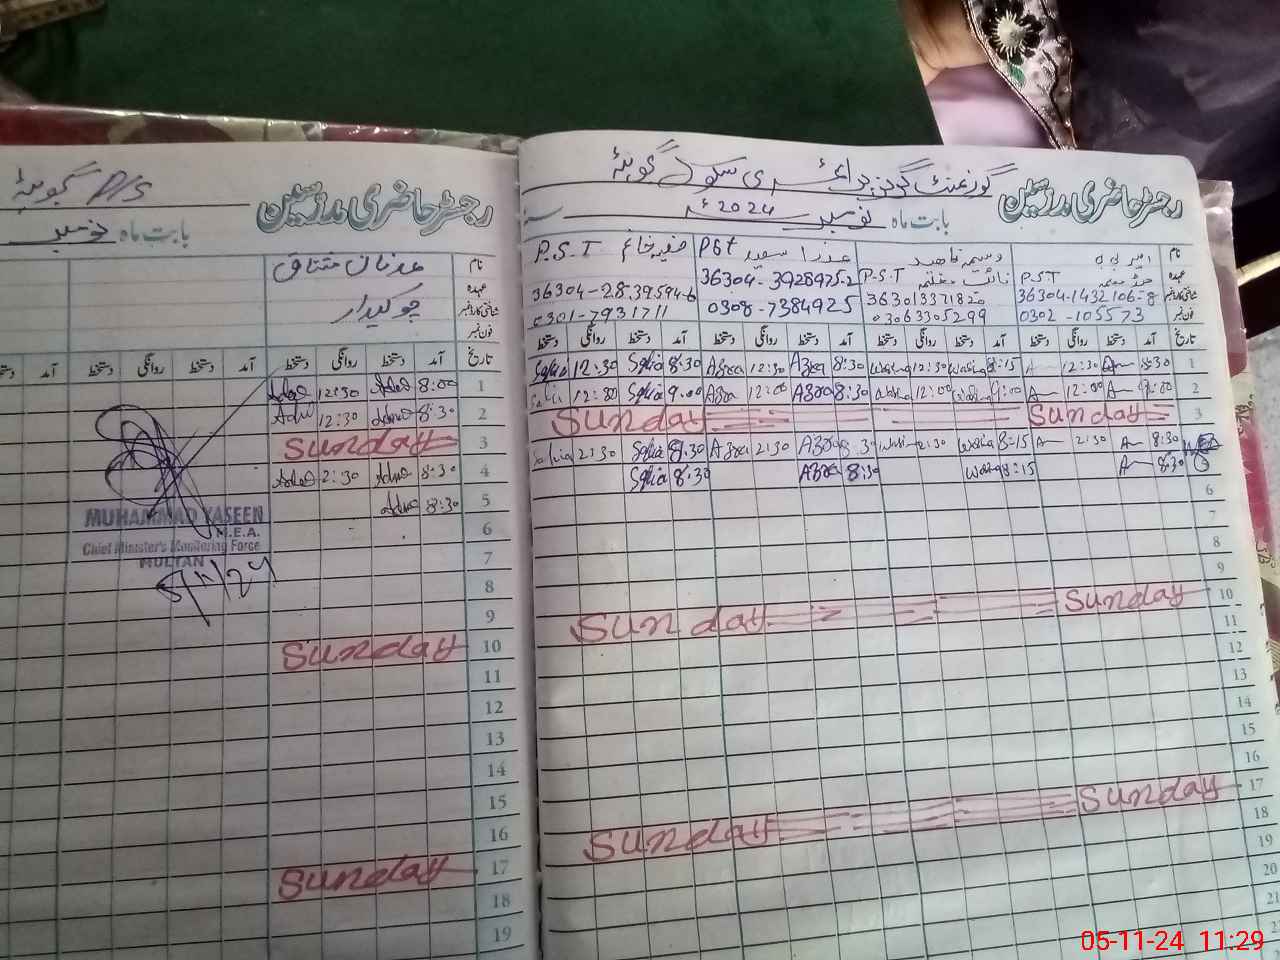 گورنمنٹ گرلز پرائمری سکول گوبئہ
رجسٹر حاضری مدرسین
بابت ماہ نومبر 2024ء سنہ
نام
عہدہ
شناختی کارڈ نمبر
فون نمبر
امیر بی بی
P.S.T
36304-1432106-8
0302-105573
P.S.T
363013371820
03063305299
عذرا سعید PSt
36304-3928975-2
0308-7384925
P.S.T
36304-2839594-6
0301-7931711
تاریخ آمد دستخط روانگی دستخط آمد دستخط روانگی دستخط آمد دستخط روانگی دستخط آمد دستخط روانگی دستخط
1 8:30 A 12:30 A 8:15 12:30 8:30 Azra 12:30 Azra 8:30 Safia 12:30 Safia
2 9:00 A 12:00 A 9:00 12:00 8:30 Azra 12:00 Azra 9:00 Safia 12:30 Safia
3 Sunday Sunday
8:30 A 2:30 A 8:15 2:30 8:30 Azra 2:30 Azra 8:30 Safia 2:30 Safia
8:30 A 8:15 8:30 Azra 8:30 Safia
6
7
8
9
10 Sunday Sunday
11
12
13
14
15
16
17 Sunday Sunday
18
19
20
P/S گوبئہ
رجسٹر حاضری مدرسین
بابت ماہ نومبر
نام
عہدہ
شناختی کارڈ نمبر
فون نمبر
عدنان مشتاق
چوکیدار
تاریخ آمد دستخط روانگی دستخط آمد دستخط روانگی دستخط آمد
1 8:00 12:30
2 8:30 12:30
3 Sunday
4 8:30 2:30
5 8:30
MUHAMMAD YASEEN
M.E.A.
Chief Minister's Monitoring Force
MULTAN
5/11/24
6
7
8
9
10 Sunday
11
12
13
14
15
16
17 Sunday
18
19
05-11-24 11:29